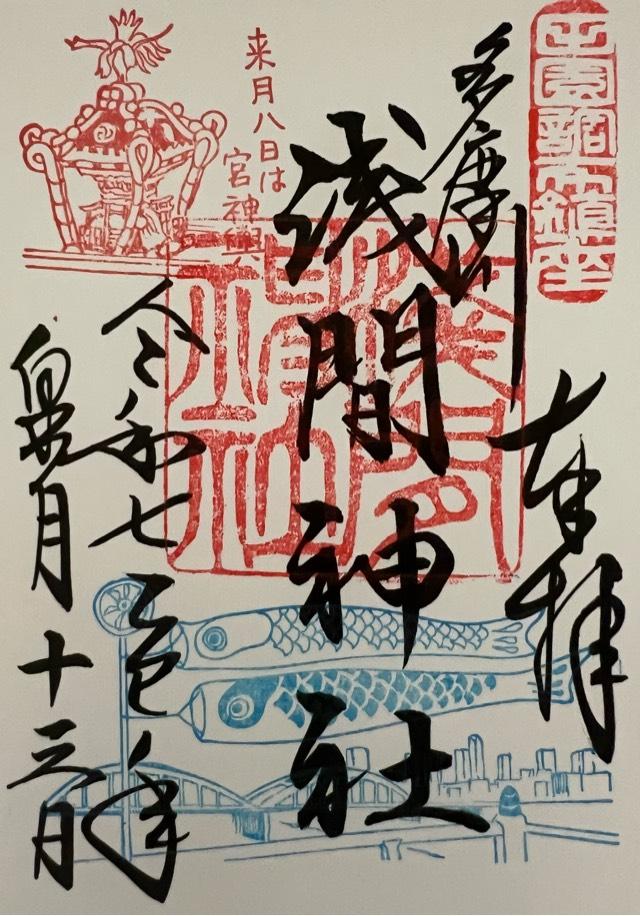 田園調布鎮座
奉拝
多摩川
浅間神社
来月八日は
宮神輿
令和七乙巳年
皐月十三日